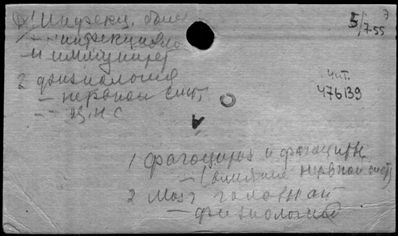 1 Инфекц. боле
— инфекцион
— иммунитет
2 физиология
— нервной сист.
— ц.н.с
5/755
чит.
476139
1 фагоцитоз и фагоциты
— (влияние нервной сист)
2 Мозг головной
— физиология